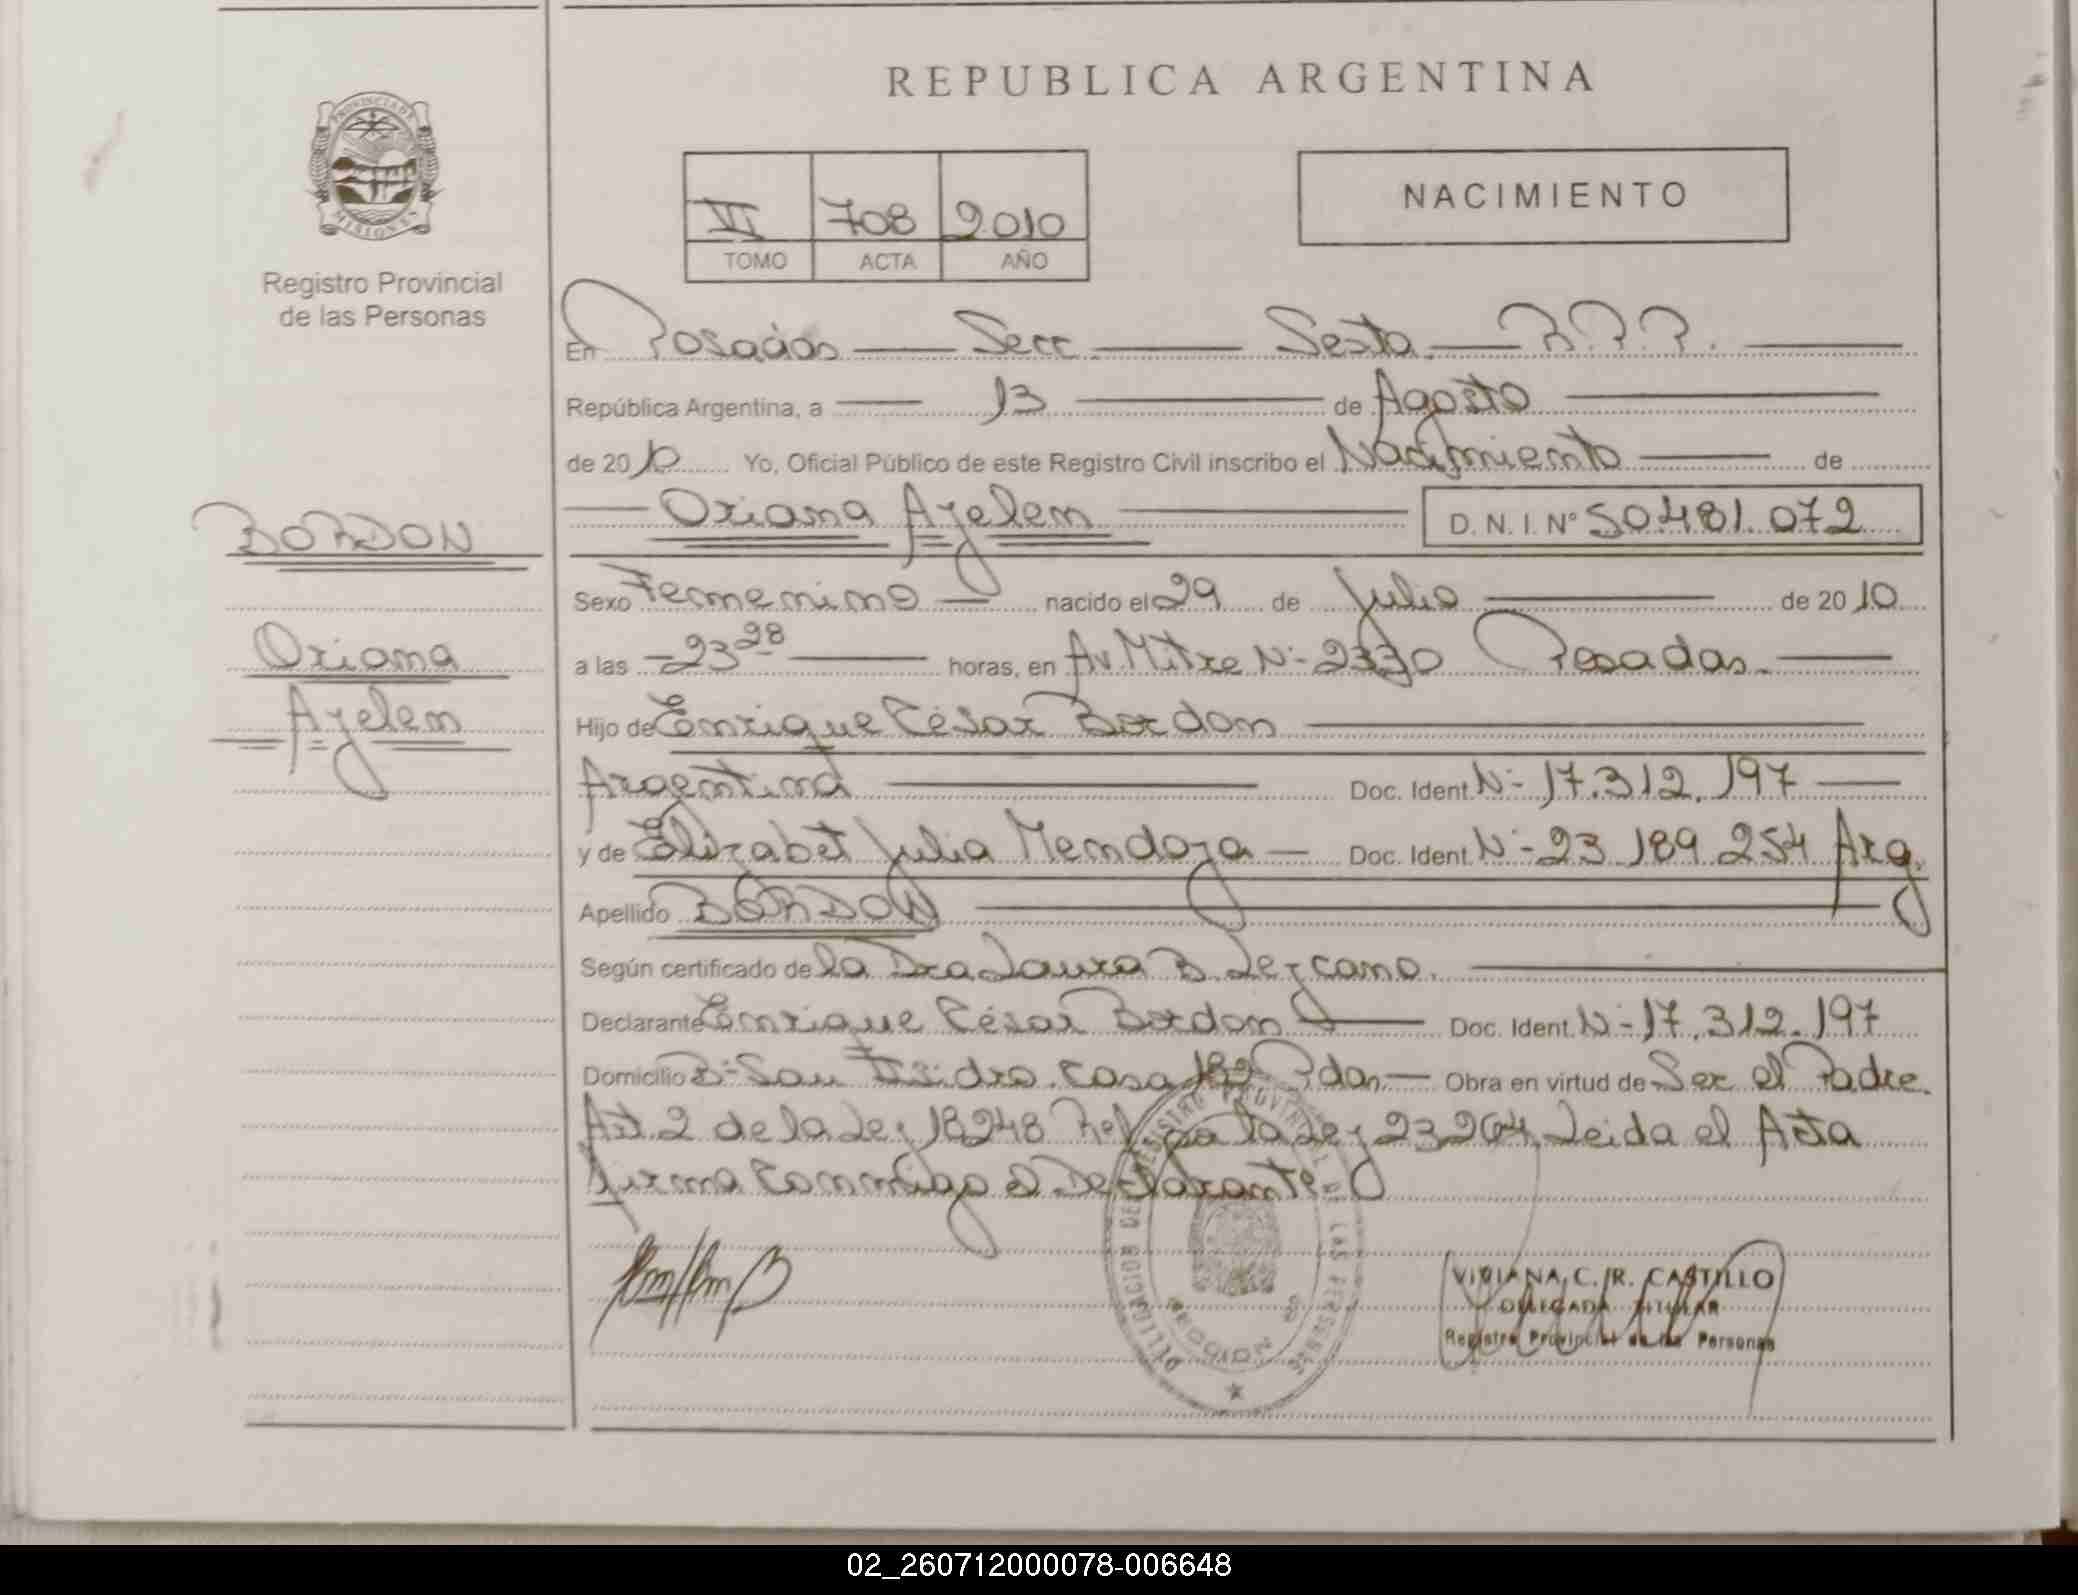 REPUBLICA ARGENTINA
PROVINCIA DE
MISIONES
Registro Provincial
de las Personas
VI 708 2010
TOMO ACTA AÑO
NACIMIENTO
En Posadas Secc. Sexta. R.P.P.
República Argentina, a 13 de Agosto
de 2010 Yo, Oficial Público de este Registro Civil inscribo el Nacimiento de
Oriana Ayelen D. N. I. Nº 50.481.072
BORDON
Oriana
Ayelen
Sexo Femenino nacido el 29 de Julio de 2010
a las 23 28 horas, en Av. Mitre Nº 2330 Posadas.
Hijo de Enrique César Bordon
Argentina Doc. Ident. Nº 17.312.197
y de Elizabet Julia Mendoza Doc. Ident. Nº 23.189.254 Arg.
Apellido BORDON
Según certificado de la Dra Laura B. Lezcano.
Declarante Enrique César Bordon Doc. Ident. Nº 17.312.197
Domicilio Bº San Isidro. Casa Pdas. Obra en virtud de Ser el Padre.
Art. 2 de la Ley 18248 Ref. por la Ley 23264. Leida el Acta
firma Conmigo el Declarante.
DELEGACION DEL REGISTRO PROVINCIAL DE LAS PERSONAS
VIVIANA, C. R. CASTILLO
DELEGADA TITULAR
Registro Provincial de las Personas
02_260712000078-006648